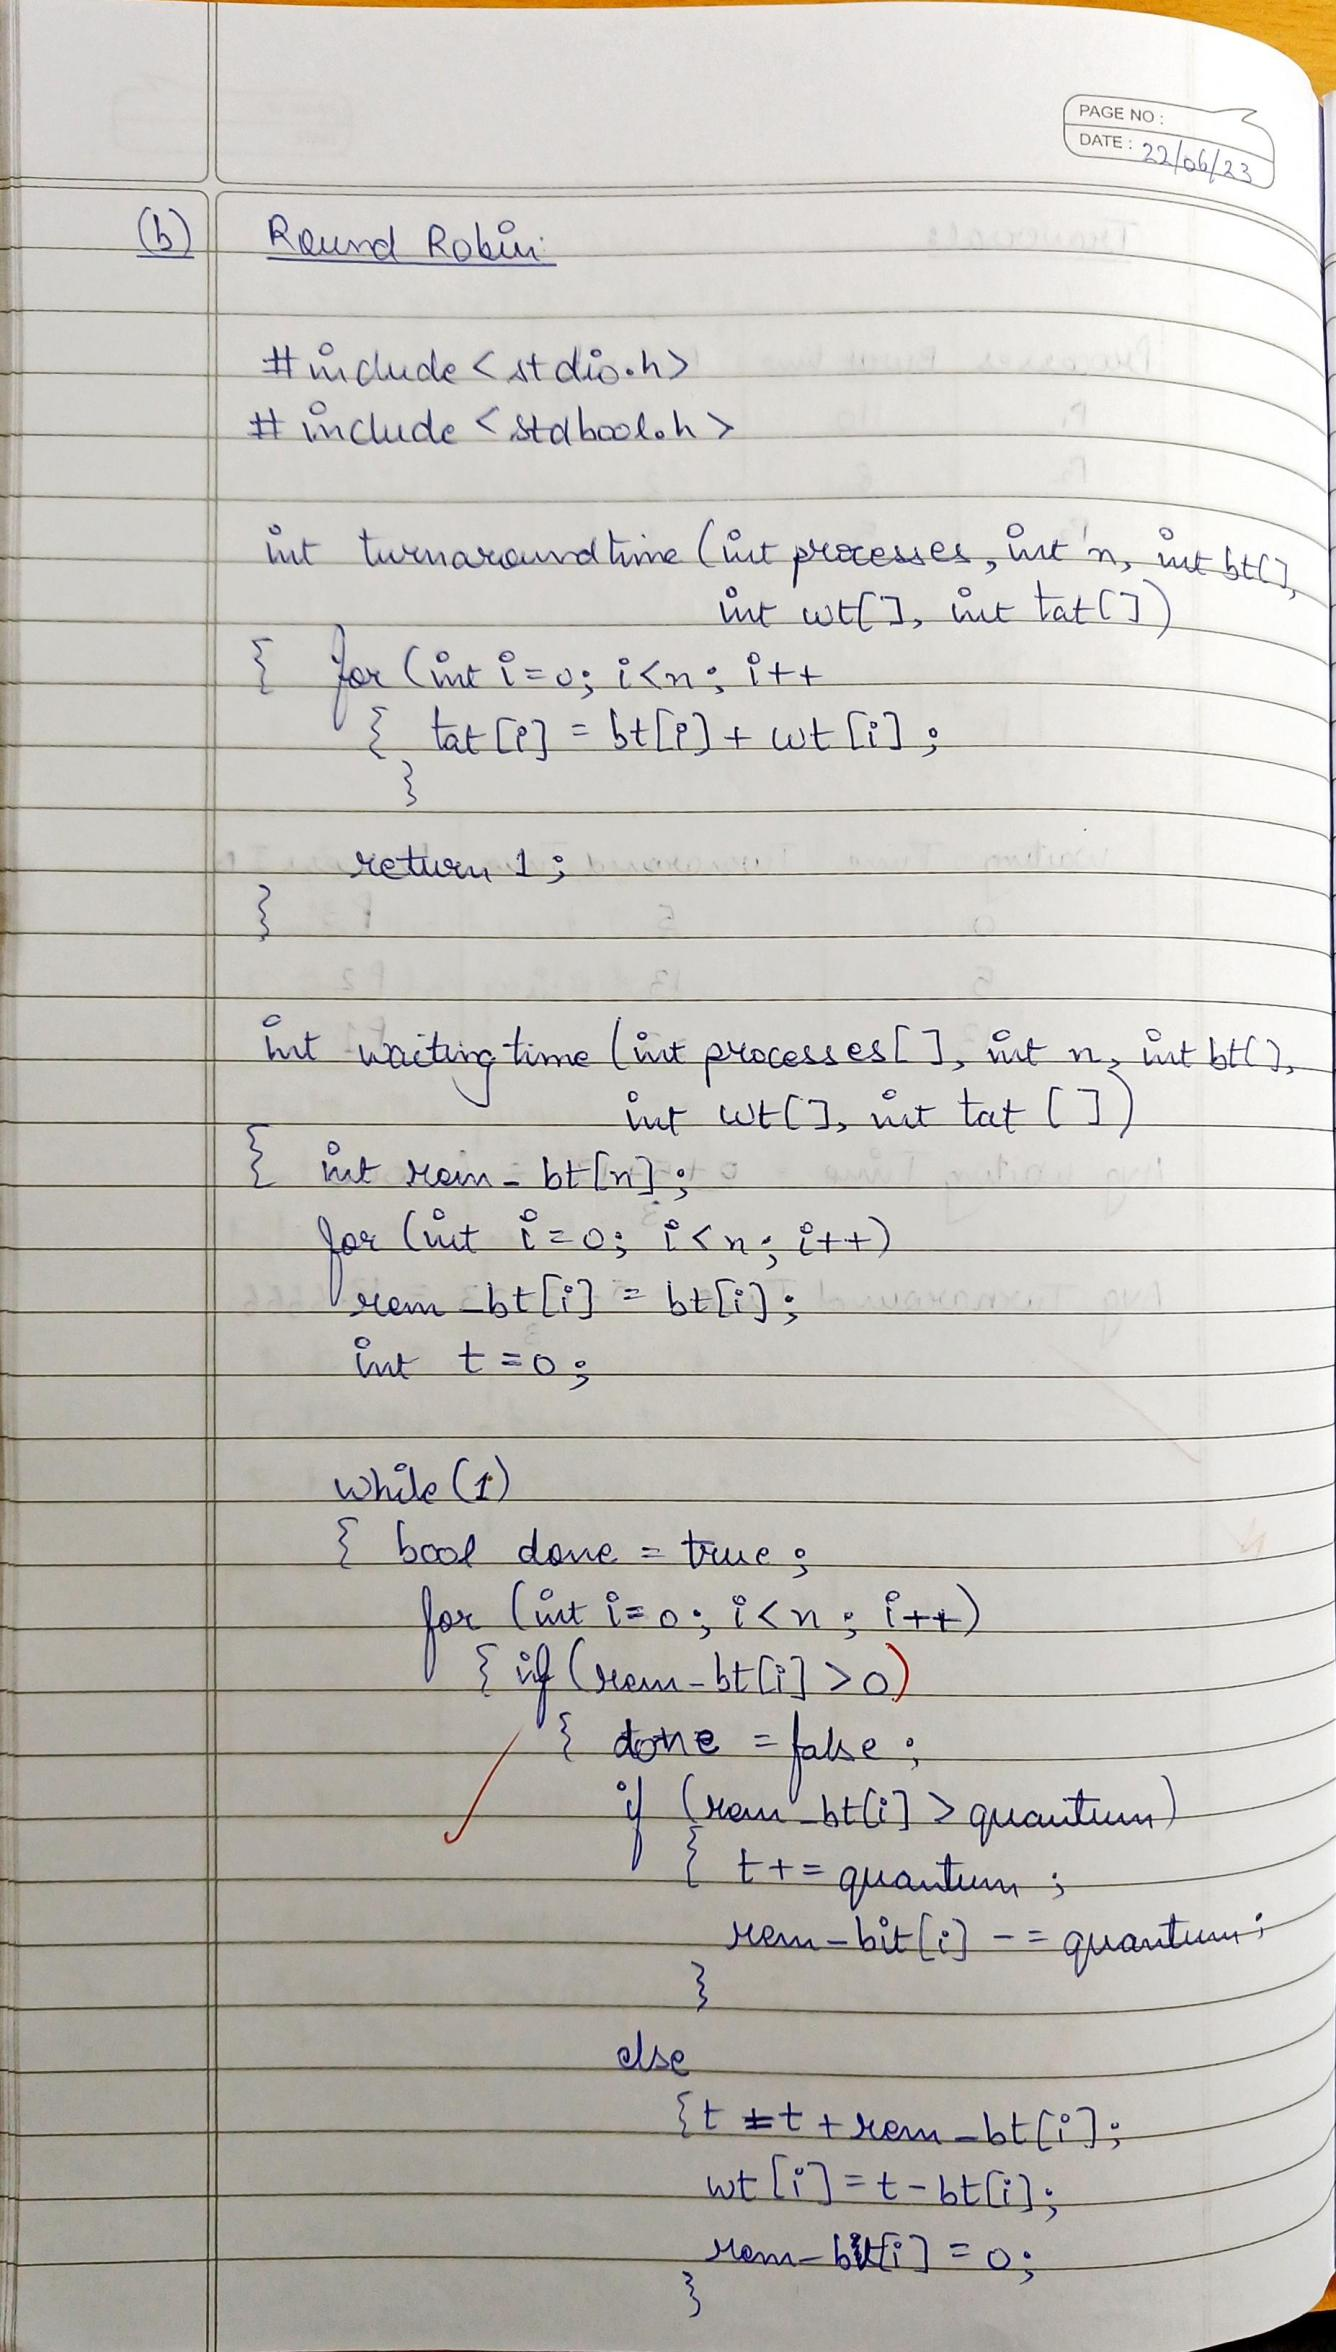 PAGE NO :
DATE : 22/06/23
(b) Round Robin:
#include <stdio.h>
#include <stdbool.h>
int turnaroundtime (int processes, int n, int bt[],
int wt[], int tat[])
{ for (int i=0; i<n; i++
{ tat[i] = bt[i] + wt[i];
}
return 1;
}
int waitingtime (int processes[], int n, int bt[],
int wt[], int tat[])
{ int rem_bt[n];
for (int i=0; i<n; i++)
rem_bt[i] = bt[i];
int t=0;
while (1)
{ bool done = true;
for (int i=0; i<n; i++)
{ if (rem_bt[i] >0)
{ done = false;
if (rem_bt[i] > quantum)
{ t+= quantum;
rem_bit[i] -= quantum;
}
else
{ t =t + rem_bt[i];
wt[i] = t - bt[i];
rem_bt[i] = 0;
}